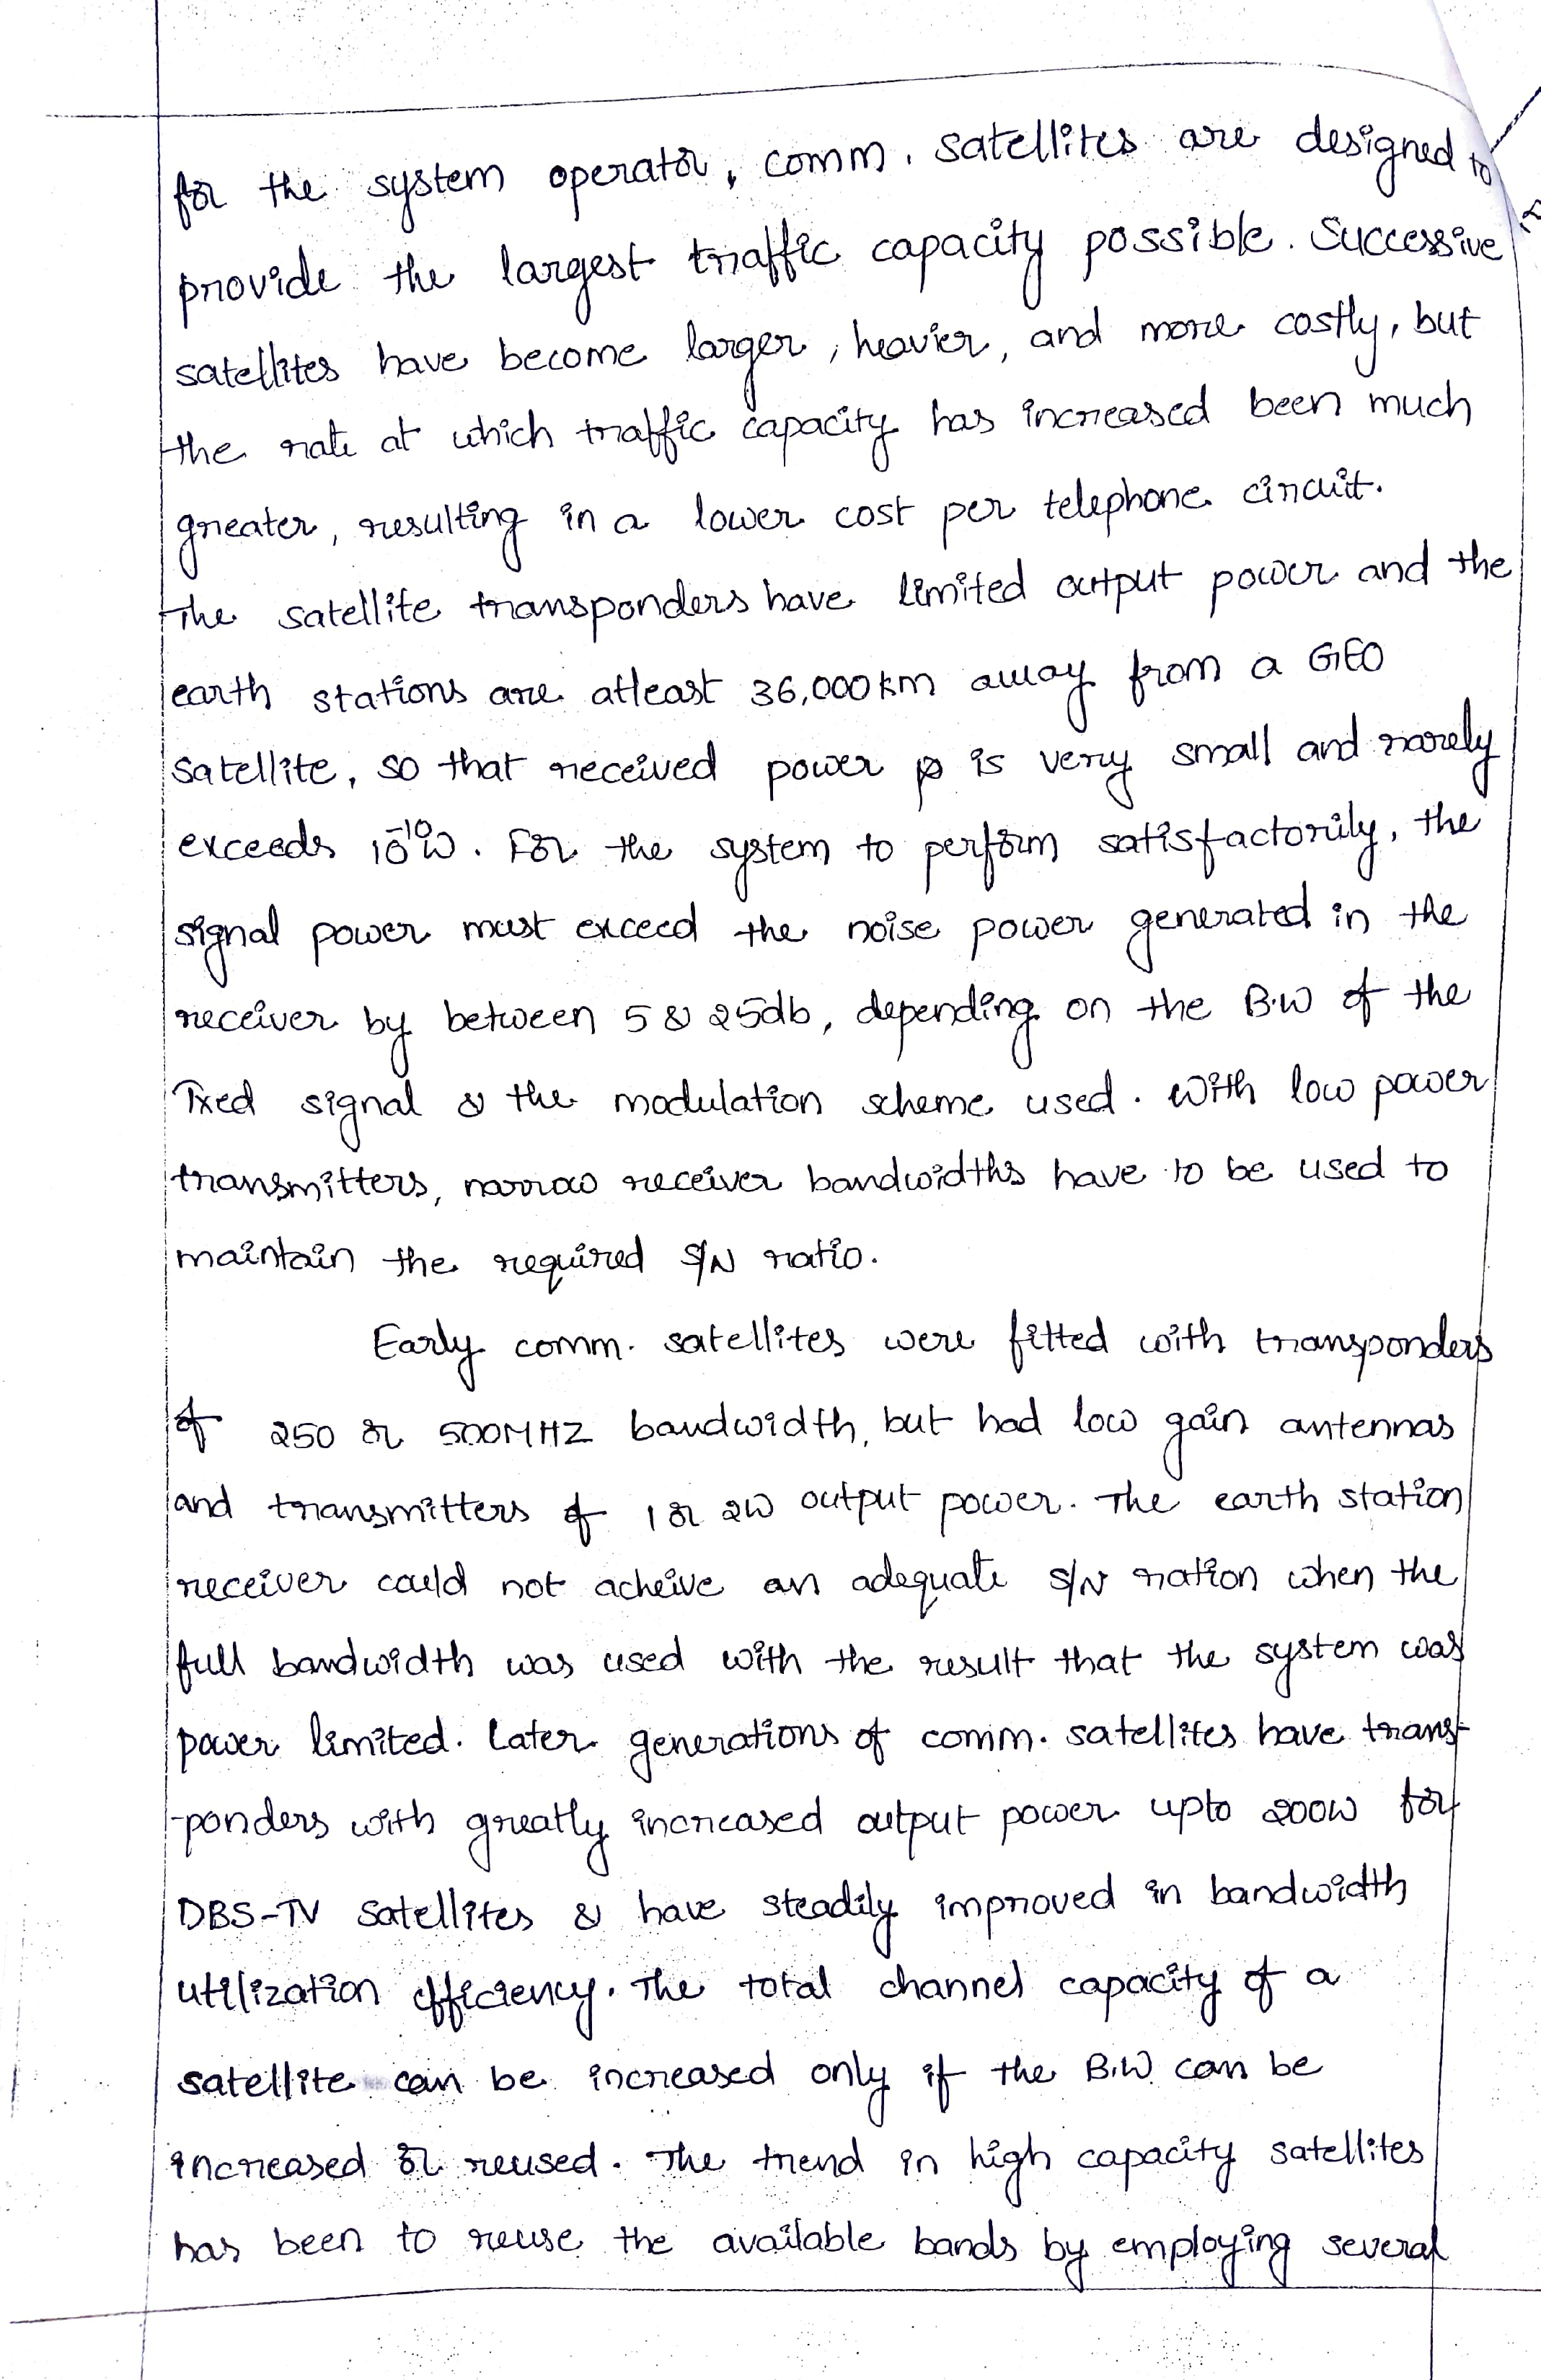 for the system operator, comm. satellites are designed to
provide the largest traffic capacity possible. Successive
satellites have become larger, heavier, and more costly, but
the rate at which traffic capacity has increased been much
greater, resulting in a lower cost per telephone circuit.
The satellite transponders have limited output power and the
earth stations are atleast 36,000km away from a GEO
satellite, so that received power is very small and rarely
exceeds 10⁻¹⁰W. For the system to perform satisfactorily, the
signal power must exceed the noise power generated in the
receiver by between 5 & 25db, depending on the B.W of the
Txed signal & the modulation scheme used. With low power
transmitters, narrow receiver bandwidths have to be used to
maintain the required S/N ratio.
Early comm. satellites were fitted with transponders
of 250 or 500MHZ bandwidth, but had low gain antennas
and transmitters of 1 or 2W output power. The earth station
receiver could not acheive an adequate S/N ration when the
full bandwidth was used with the result that the system was
power limited. Later generations of comm. satellites have trans-
-ponders with greatly increased output power upto 200W for
DBS-TV satellites & have steadily improved in bandwidth
utilization efficiency. The total channel capacity of a
satellite can be increased only if the B.W can be
increased or reused. The trend in high capacity satellites
has been to reuse the available bands by employing several